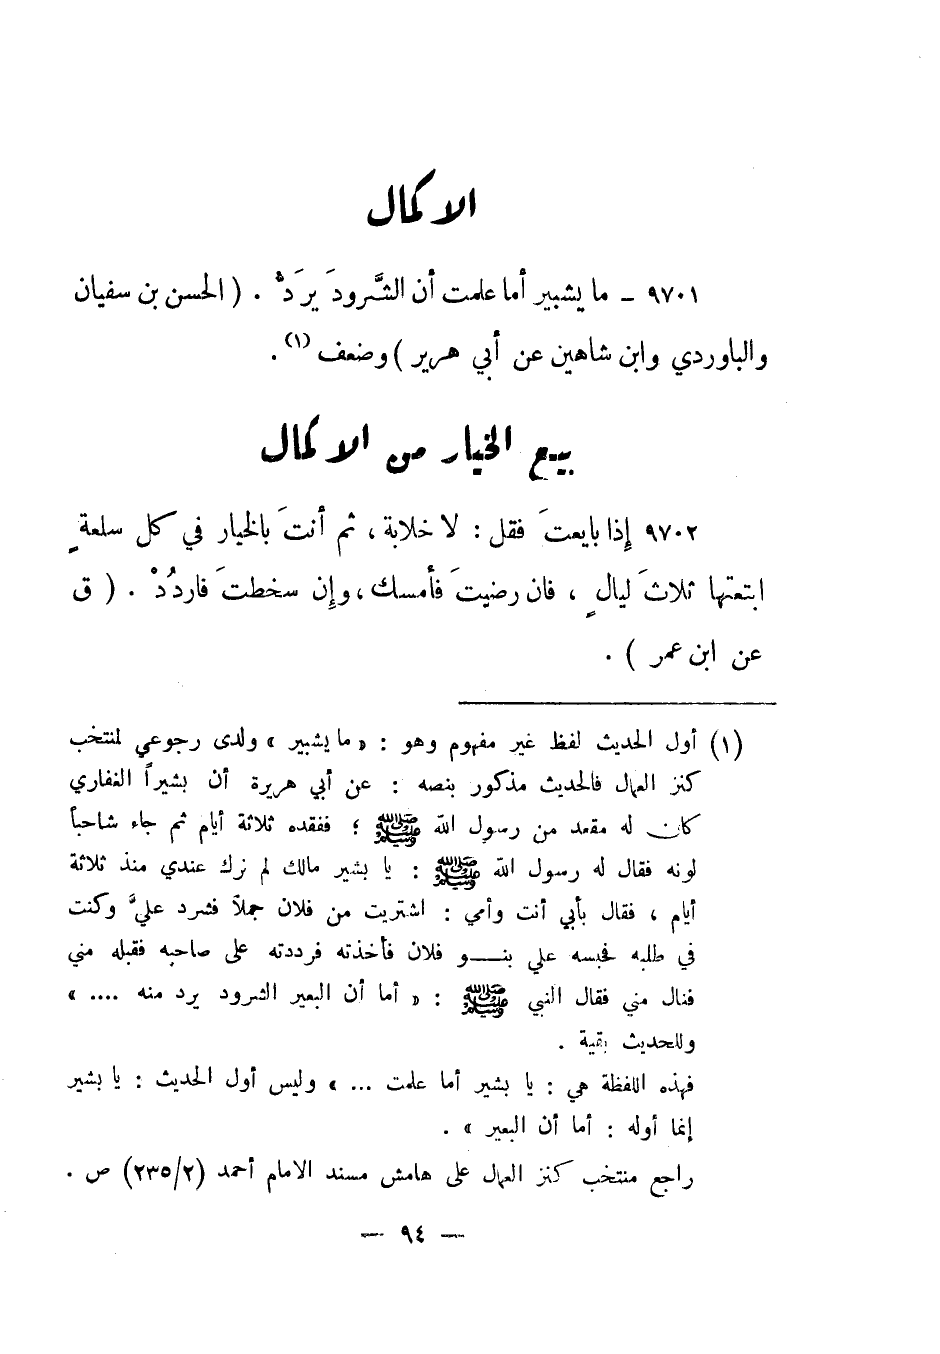 الاكمال
٩٧٠١ ـ ما يشبير أما علمت أن الشَّرودَ يرَدْ . ( الحسن بن سفيان
والباوردي وابن شاهين عن أبي هرير ) وضعف (١) .
بيع الخيار من الاكمال
٩٧٠٢ إذا بايعتَ فقل : لا خلابة ، ثم أنتَ بالخيار في كل سلعةٍ
ابتعتها ثلاثَ ليالٍ ، فان رضيتَ فأمسك ، وإن سخطتَ فاردُدْ . ( ق
عن ابن عمر ) .
(١) أول الحديث لفظ غير مفهوم وهو : « ما يشبير » ولدى رجوعي لمنتخب
كنز العمال فالحديث مذكور بنصه : عن أبي هريرة أن بشيراً الغفاري
كان له مقعد من رسول الله ﷺ ؛ ففقده ثلاثة أيام ثم جاء شاحباً
لونه فقال له رسول الله ﷺ : يا بشير مالك لم نرك عندي منذ ثلاثة
أيام ، فقال بأبي أنت وأمي : اشتريت من فلان جملاً فشرد عليَّ وكنت
في طلبه فحبسه علي بنـــو فلان فأخذته فرددته على صاحبه فقبله مني
فنال مني فقال النبي ﷺ : « أما أن البعير الشرود يرد منه .... »
وللحديث بقية .
فهذه اللفظة هي : يا بشير أما علمت ... » وليس أول الحديث : يا بشير
إنما أوله : أما أن البعير » .
راجع منتخب كنز العمال على هامش مسند الامام أحمد (٢٣٥/٢) ص .
— ٩٤ —